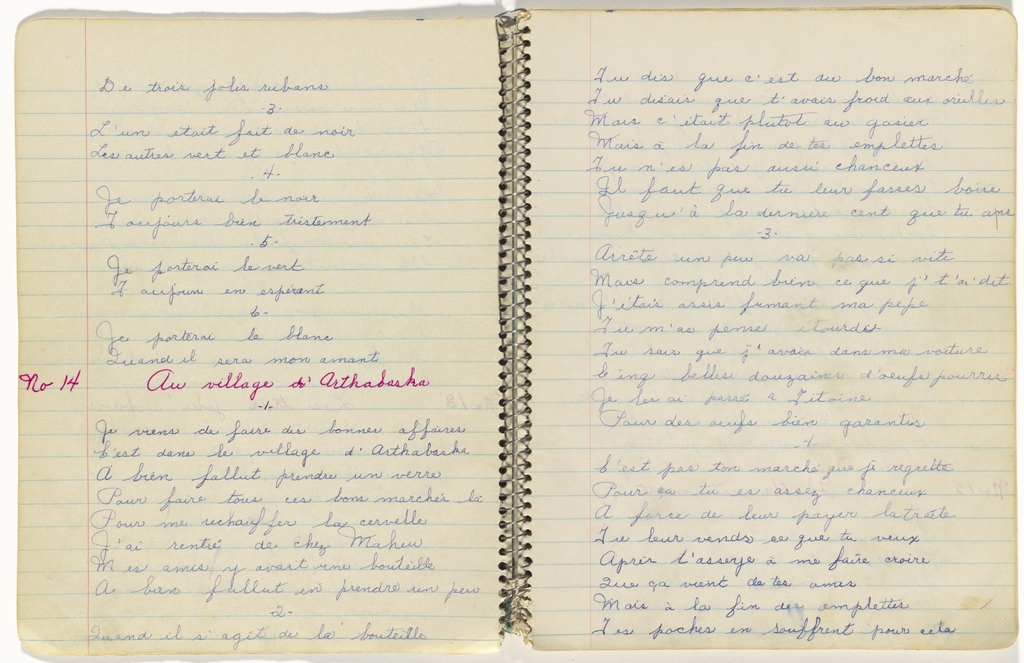 De trois jolis rubans
-3-
L'un etait fait de noir
Les autres vert et blanc
-4-
Je porterai le noir
Toujours bien tristement
-5-
Je porterai le vert
Toujour en espérent
6-
Je porterai le blanc
Quand il sera mon amant
No 14 Au village d'Arthabaska
-1-
Je viens de faire des bonnes affaires
C'est dans le village d'Arthabaska
A bien fallut prendre un verre
Pour faire tous ces bons marchés là
Pour me rechauffer la cervelle
J'ai rentré de chez Maheu
Mes amis y avait une bouteille
A bien fallut en prendre un peu
-2-
Quand il s'agit de la bouteille
Tu dis que c'est du bon marché
Tu disais que t'avais froid aux oreilles
Mais c'était plutot au gosier
Mais à la fin de tes emplettes
Tu n'es pas aussi chanceux
Il faut que tu leur fasses boire
Jusqu'à la derniere cent que tu
-3-
Arrête un peu va pas si vite
Mais comprend bien ce que j't'ai dit
J'étais assis fumant ma pipe
Tu m'as pense étourdis
Tu sais que j'avais dans ma voiture
Cinq belles douzaines d'oeufs pourris
Je les ai passé a Titoine
Pour des oeufs bien garantis
-4-
C'est pas ton marché que je regrette
Pour ça tu es assez chanceux
A force de leur payer la traite
Tu leur vends ce que tu veux
Après t'asseye à me faire croire
Que ça vient de tes amis
Mais à la fin des emplettes
Tes poches en souffrent pour cela